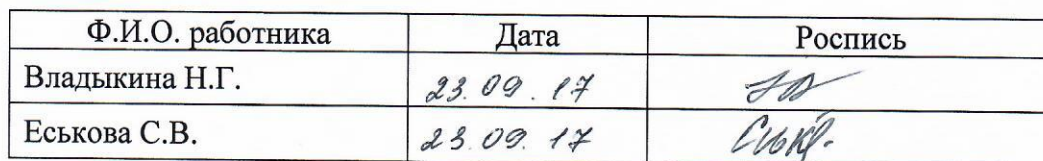 Ф.И.О. работника Дата Роспись
Владыкина Н.Г. 23.09.17
Еськова С.В. 23.09.17